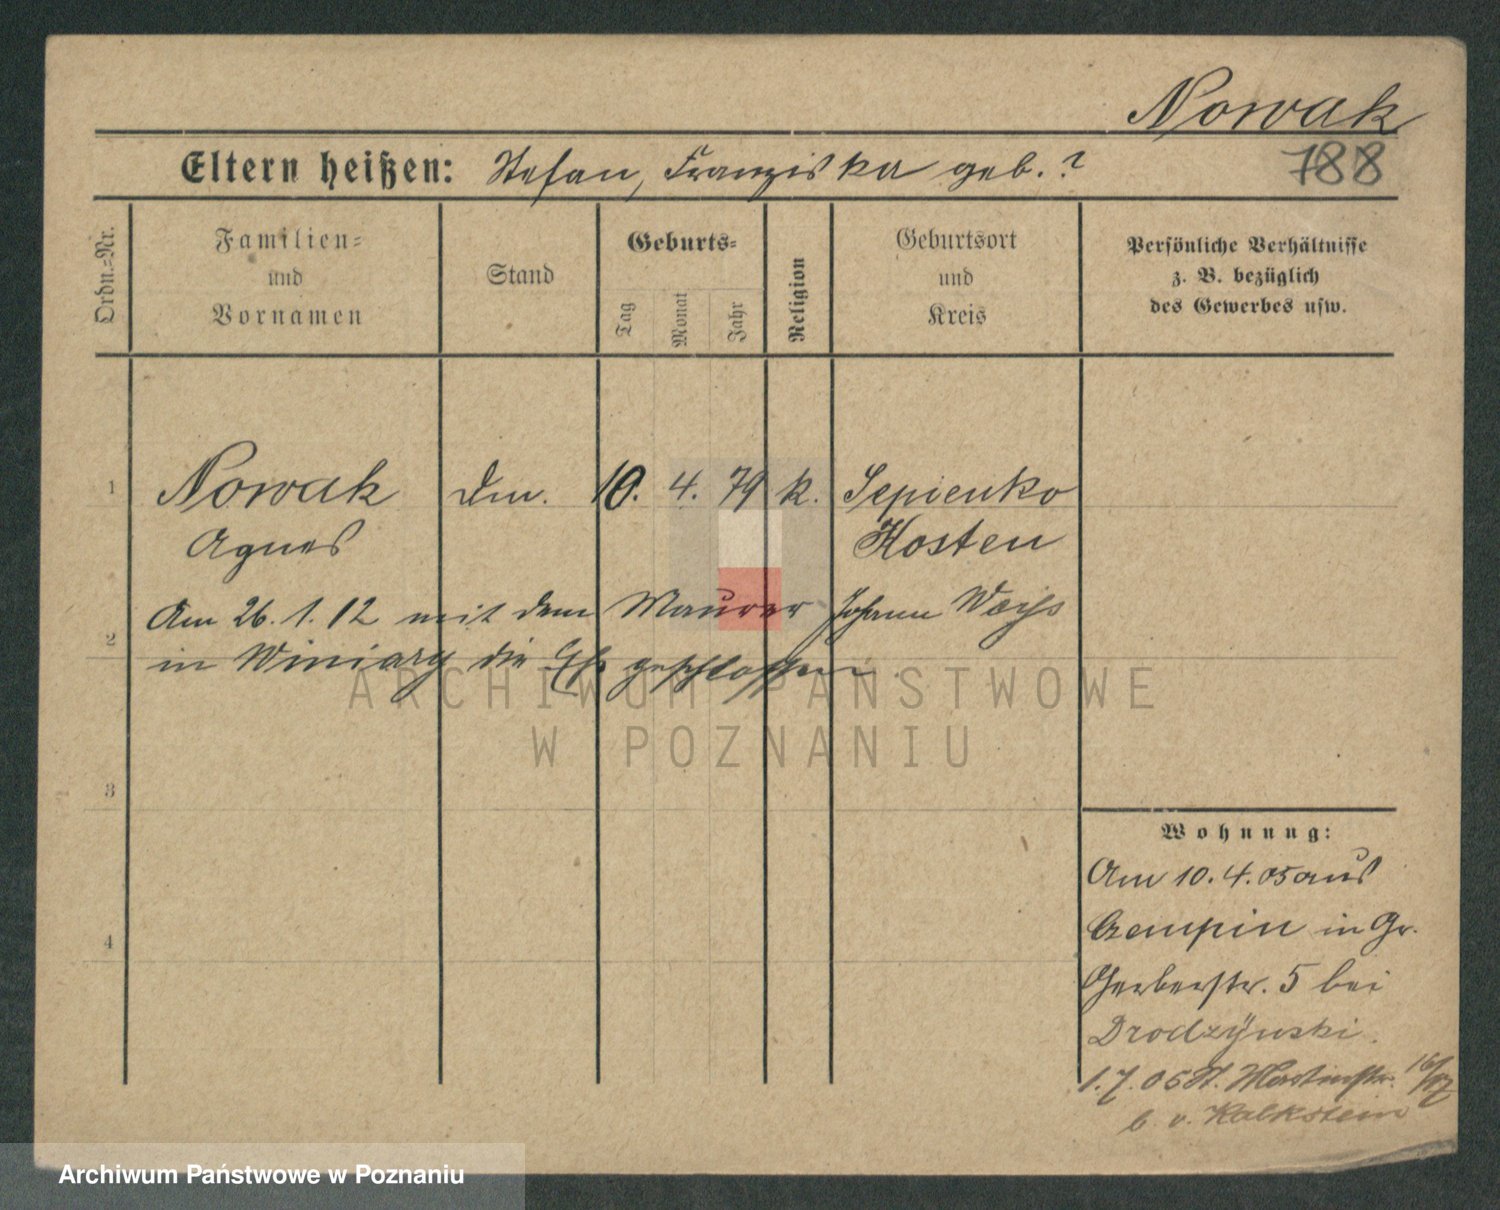 Nowak
788
Eltern heißen: Stefan, Franziska geb. ?
Ordn.-Nr.
Familien-
und
Vornamen
Stand
Geburts-
Tag
Monat
Jahr
Religion
Geburtsort
und
Kreis
Persönliche Verhältnisse
z. B. bezüglich
des Gewerbes usw.
1 Nowak 10. 4. 79 k. Sepienko
Agnes Kosten
Am 26. 1. 12 mit dem Maurer Johann Weiss
2
in Winiary die Ehe geschlossen
ARCHIWUM PAŃSTWOWE
W POZNANIU
3
Wohnung:
Am 10. 4. 05 aus
Czempin in Gr.
4
Gerberstr. 5 bei
Drodzynski.
1. 7. 05 St. Martinstr.
b v. Kalkstein
Archiwum Państwowe w Poznaniu